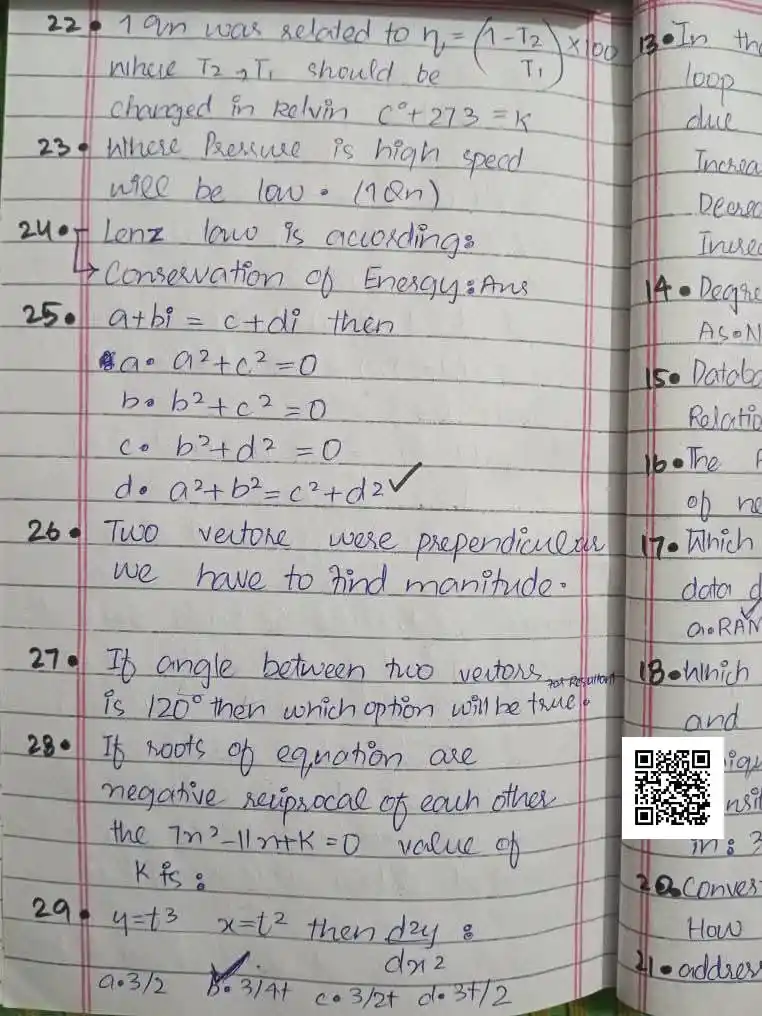 22. 1 Qn was related to η = (1 - T2/T1) × 100
where T2, T1 should be
changed in kelvin C°+273 = K
23. Where Pressure is high speed
will be low. (1Qn)
24. Lenz law is according:
→ Conservation of Energy: Ans
25. a+bi = c+di then
a. a²+c² = 0
b. b²+c² = 0
c. b²+d² = 0
d. a²+b² = c²+d2 ✓
26. Two vectore were prependicular
we have to find manitude.
27. If angle between two vectors for Resultant
is 120° then which option will be true.
28. If roots of equation are
negative reciprocal of each other
the 7n²-11n+K=0 value of
K is:
29. y=t³ x=t² then d2y/dx2 :
a. 3/2 b. 3/4t ✓ c. 3/2t d. 3t/2
13. In
loop
due
14.
15.
16. The
of
17. Which
data
a. RAM
18. Which
and
in: 3
20.
How
21.